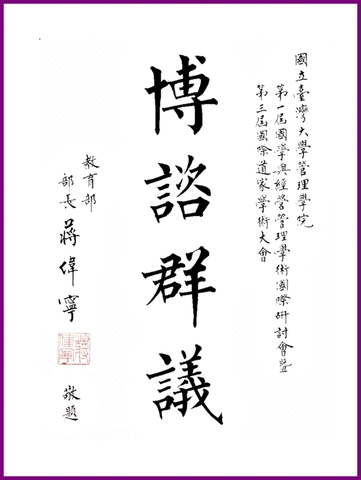 國立臺灣大學管理學院
第一屆國學與經營管理學術國際研討會暨
第三屆國際道家學術大會
博諮群議
教育部
部長 蔣偉寧
敬題